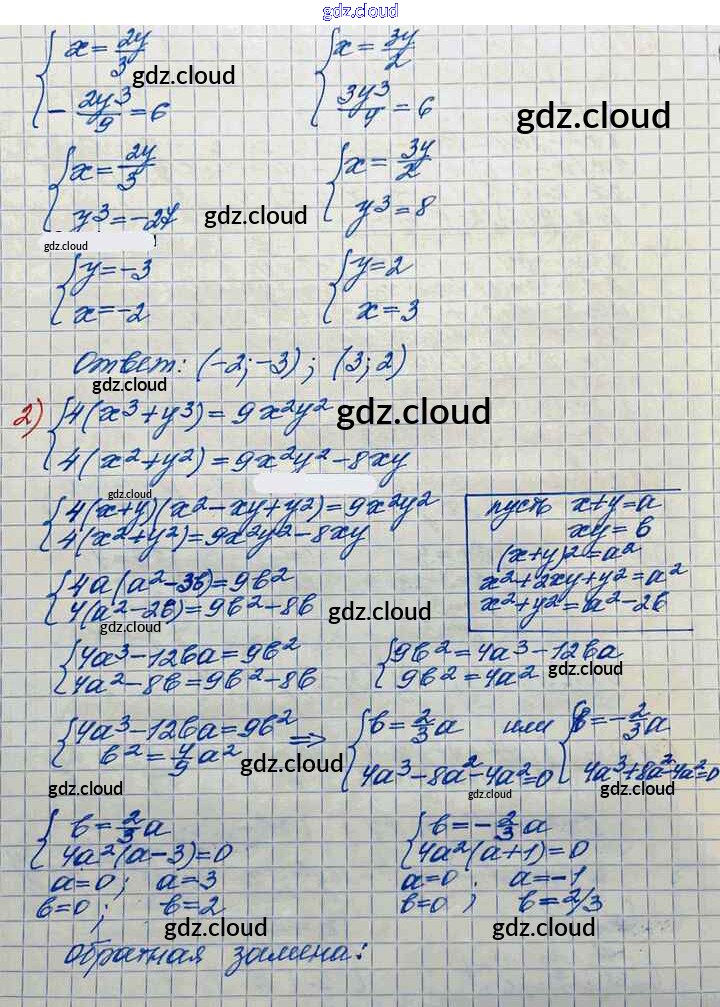 gdz.cloud
x = 2y/3    x = 3y/2
gdz.cloud
- 2y³/9 = 6    3y³/4 = 6
gdz.cloud
x = 2y/3    x = 3y/2
y³ = -27    y³ = 8
gdz.cloud
gdz.cloud
y = -3    y = 2
x = -2    x = 3
Ответ: (-2; -3); (3; 2)
gdz.cloud
2) 4(x³ + y³) = 9x²y²
gdz.cloud
4(x² + y²) = 9x²y² - 8xy
gdz.cloud
4(x+y)(x² - xy + y²) = 9x²y²
4(x² + y²) = 9x²y² - 8xy
пусть x+y = a
xy = b
(x+y)² = a²
x² + 2xy + y² = a²
x² + y² = a² - 2b
4a(a² - 3b) = 9b²
4(a² - 2b) = 9b² - 8b
gdz.cloud
gdz.cloud
4a³ - 12ba = 9b²    9b² = 4a³ - 12ba
4a² - 8b = 9b² - 8b    9b² = 4a²
gdz.cloud
4a³ - 12ba = 9b²
b² = 4/9 a²
⇒ b = 2/3 a    или    b = -2/3 a
4a³ - 8a² - 4a² = 0    4a³ + 8a² - 4a² = 0
gdz.cloud
gdz.cloud
gdz.cloud
gdz.cloud
b = 2/3 a    b = -2/3 a
4a²(a - 3) = 0    4a²(a + 1) = 0
a = 0; a = 3    a = 0; a = -1
b = 0; b = 2    b = 0; b = 2/3
gdz.cloud
gdz.cloud
обратная замена: